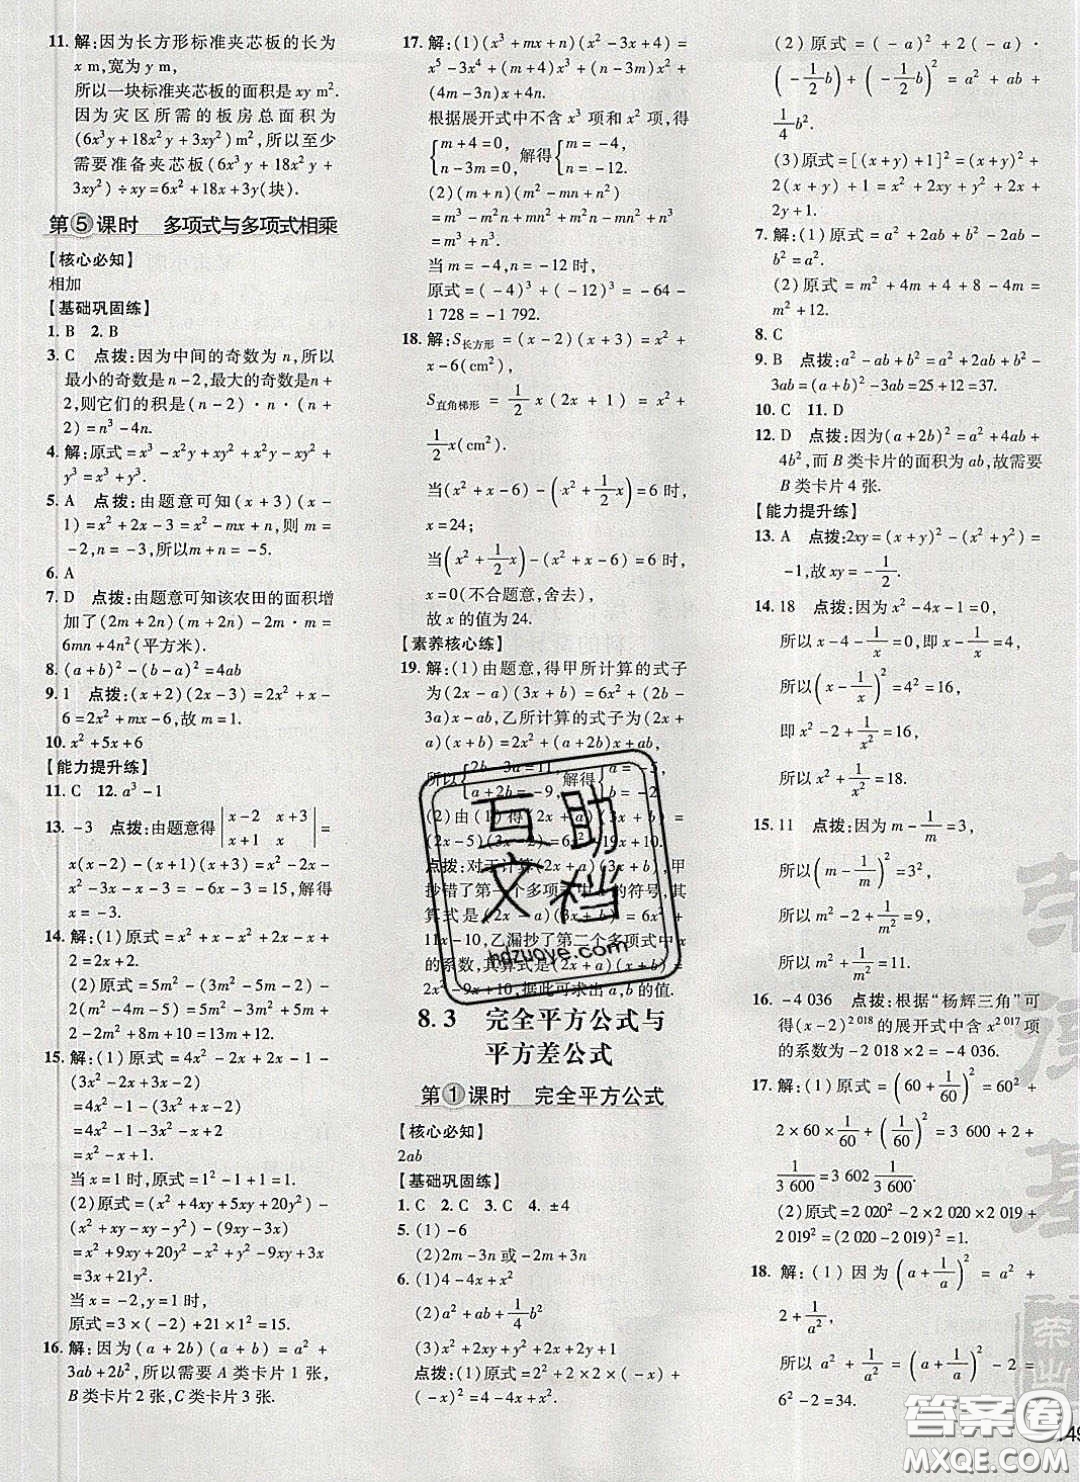 11. 解:因为长方形标准夹芯板的长为
x m,宽为 y m,
所以一块标准夹芯板的面积是 xy m².
因为灾区所需的板房总面积为
(6x³y+18x²y+3xy²)m²,所以至少
需要准备夹芯板(6x³y+18x²y+
3xy²)÷xy=6x²+18x+3y(块).
第⑤课时 多项式与多项式相乘
【核心必知】
相加
【基础巩固练】
1. B 2. B
3. C 点拨:因为中间的奇数为 n,所以
最小的奇数是 n-2,最大的奇数是 n+
2,则它们的积是(n-2)·n·(n+
2)=n³-4n.
4. 解:原式=x³-x²y+xy²+x²y-xy²+
y³=x³+y³.
5. A 点拨:由题意可知(x+3)(x-
1)=x²+2x-3=x²-mx+n,则 m=
-2,n=-3,所以m+n=-5.
6. A
7. D 点拨:由题意可知该农田的面积增
加了(2m+2n)(2m+n)-2m·2m=
6mn+4n²(平方米).
8. (a+b)²-(b-a)²=4ab
9. 1 点拨:(x+2)(2x-3)=2x²+x-
6=2x²+mx-6,故m=1.
10. x²+5x+6
【能力提升练】
11. C 12. a³-1
13. -3 点拨:由题意得|x-2 x+3|
|x+1 x|=
x(x-2)-(x+3)(x+1)=x²-
2x-x²-4x-3=-6x-3=15,解得
x=-3.
14. 解:(1)原式=x²+2x+2-x²=
2x+2.
(2)原式=5m²-(5m²-2m+
2m²-4m-5)=5m²-5m²+
2m-2m²+4m+5=-2m²+6m+5.
15. 解:(1)原式=4x²-4x-2x-1-
(3x²-2x-2)=
4x²-4x-1-3x²+2x+2
=x²-x+1.
当x=1时,原式=1²-1+1=1.
(2)原式=(x²+xy+9xy+9y²)-
(x²+xy-xy-y²)-(9xy-3xy)
=x²+9xy+20y²-x²+y²-6xy=
3xy+21y².
当x=-2,y=1时,
原式=3×(-2)×1+21×1²=15.
16. 解:因为(a+2b)(a+b)=a²+
3ab+2b²,所以需要 A 类卡片 1 张,
B 类卡片 2 张,C 类卡片 3 张.
17. 解:(1)(x³+mx+n)(x²-3x+4)=
x⁵-3x⁴+(m+4)x³+(n-3m)x²+
(4m-3n)x+4n.
根据展开式中不含 x³ 项和 x² 项,得
{m+4=0, 解得{m=-4,
n-3m=0, n=-12.
(2)(m+n)(m²-mn+n²)
=m³-m²n+mn²+m²n-mn²+n³
=m³+n³.
当 m=-4,n=-12时,
原式=(-4)³+(-12)³=-64-
1 728=-1 792.
18. 解:S长方形=(x-2)(x+3)=x²+
x-6(cm²),
S直角梯形=1/2 x(2x+1)=x²+
1/2 x(cm²).
当(x²+x-6)-(x²+1/2 x)=6时,
x=24;
当(x²+1/2 x)-(x²+x-6)=6时,
x=0(不合题意,舍去).
故 x 的值为 24.
【素养核心练】
19. 解:(1)由题意,得甲所计算的式子
为(2x-a)(3x+b)=6x²+(2b-
3a)x-ab,乙所计算的式子为(2x+
a)(x+b)=2x²+(a+2b)x+ab,
所以{2b-3a=11, 解得{a=-5,
a+2b=-9, b=-2.
(2)由(1)得(2x+a)(3x+b)=
(2x-5)(3x-2)=6x²-19x+10.
点拨:对于计算(2x+a)(3x+b),甲
抄错了第一个多项式中 a 的符号,其
算式是(2x-a)(3x+b)=6x²+
11x-10,乙漏抄了第二个多项式中 x
的系数,其算式是(2x+a)(x+b)=
2x²-9x+10,据此可求出 a,b 的值.
8.3 完全平方公式与
平方差公式
第①课时 完全平方公式
【核心必知】
2ab
【基础巩固练】
1. C 2. C 3. C 4. ±4
5. (1)-6
(2)2m-3n 或-2m+3n
6. (1)4-4x+x²
(2)a²+ab+1/4 b²
(3)x²+2xy+y²+2x+2y+1
点拨:(1)原式=2²-4x+x²=4-
4x+x².
(2)原式=(-a)²+2(-a)·
(-1/2 b)+(-1/2 b)²=a²+ab+
1/4 b².
(3)原式=[(x+y)+1]²=(x+y)²+
2(x+y)+1=x²+2xy+y²+2x+
2y+1.
7. 解:(1)原式=a²+2ab+b²-2ab-
b²=a².
(2)原式=m²+4m+4+8-4m=
m²+12.
8. C
9. B 点拨:a²-ab+b²=a²+2ab+b²-
3ab=(a+b)²-3ab=25+12=37.
10. C 11. D
12. D 点拨:因为(a+2b)²=a²+4ab+
4b²,而 B 类卡片的面积为 ab,故需要
B 类卡片 4 张.
【能力提升练】
13. A 点拨:2xy=(x+y)²-(x²+y²)=
-1,故xy=-1/2.
14. 18 点拨:因为x²-4x-1=0,
所以x-4-1/x=0,即x-1/x=4,
所以(x-1/x)²=4²=16,
即x²-2+1/x²=16,
所以x²+1/x²=18.
15. 11 点拨:因为m-1/m=3,
所以(m-1/m)²=3²,
所以m²-2+1/m²=9,
所以m²+1/m²=11.
16. -4 036 点拨:根据“杨辉三角”可
得(x-2)²⁰¹⁸的展开式中含x²⁰¹⁷项
的系数为-2 018×2=-4 036.
17. 解:(1)原式=(60+1/60)²=60²+
2×60×1/60+(1/60)²=3 600+2+
1/3 600=3 602 1/3 600.
(2)原式=2 020²-2×2 020×2 019+
2 019²=(2 020-2 019)²=1.
18. 解:(1)因为(a+1/a)²=a²+
2+1/a²,
所以a²+1/a²=(a+1/a)²-2=
6²-2=34.
互助
文档
hdzuoye.com
荣
答案圈
MXQE.COM
149